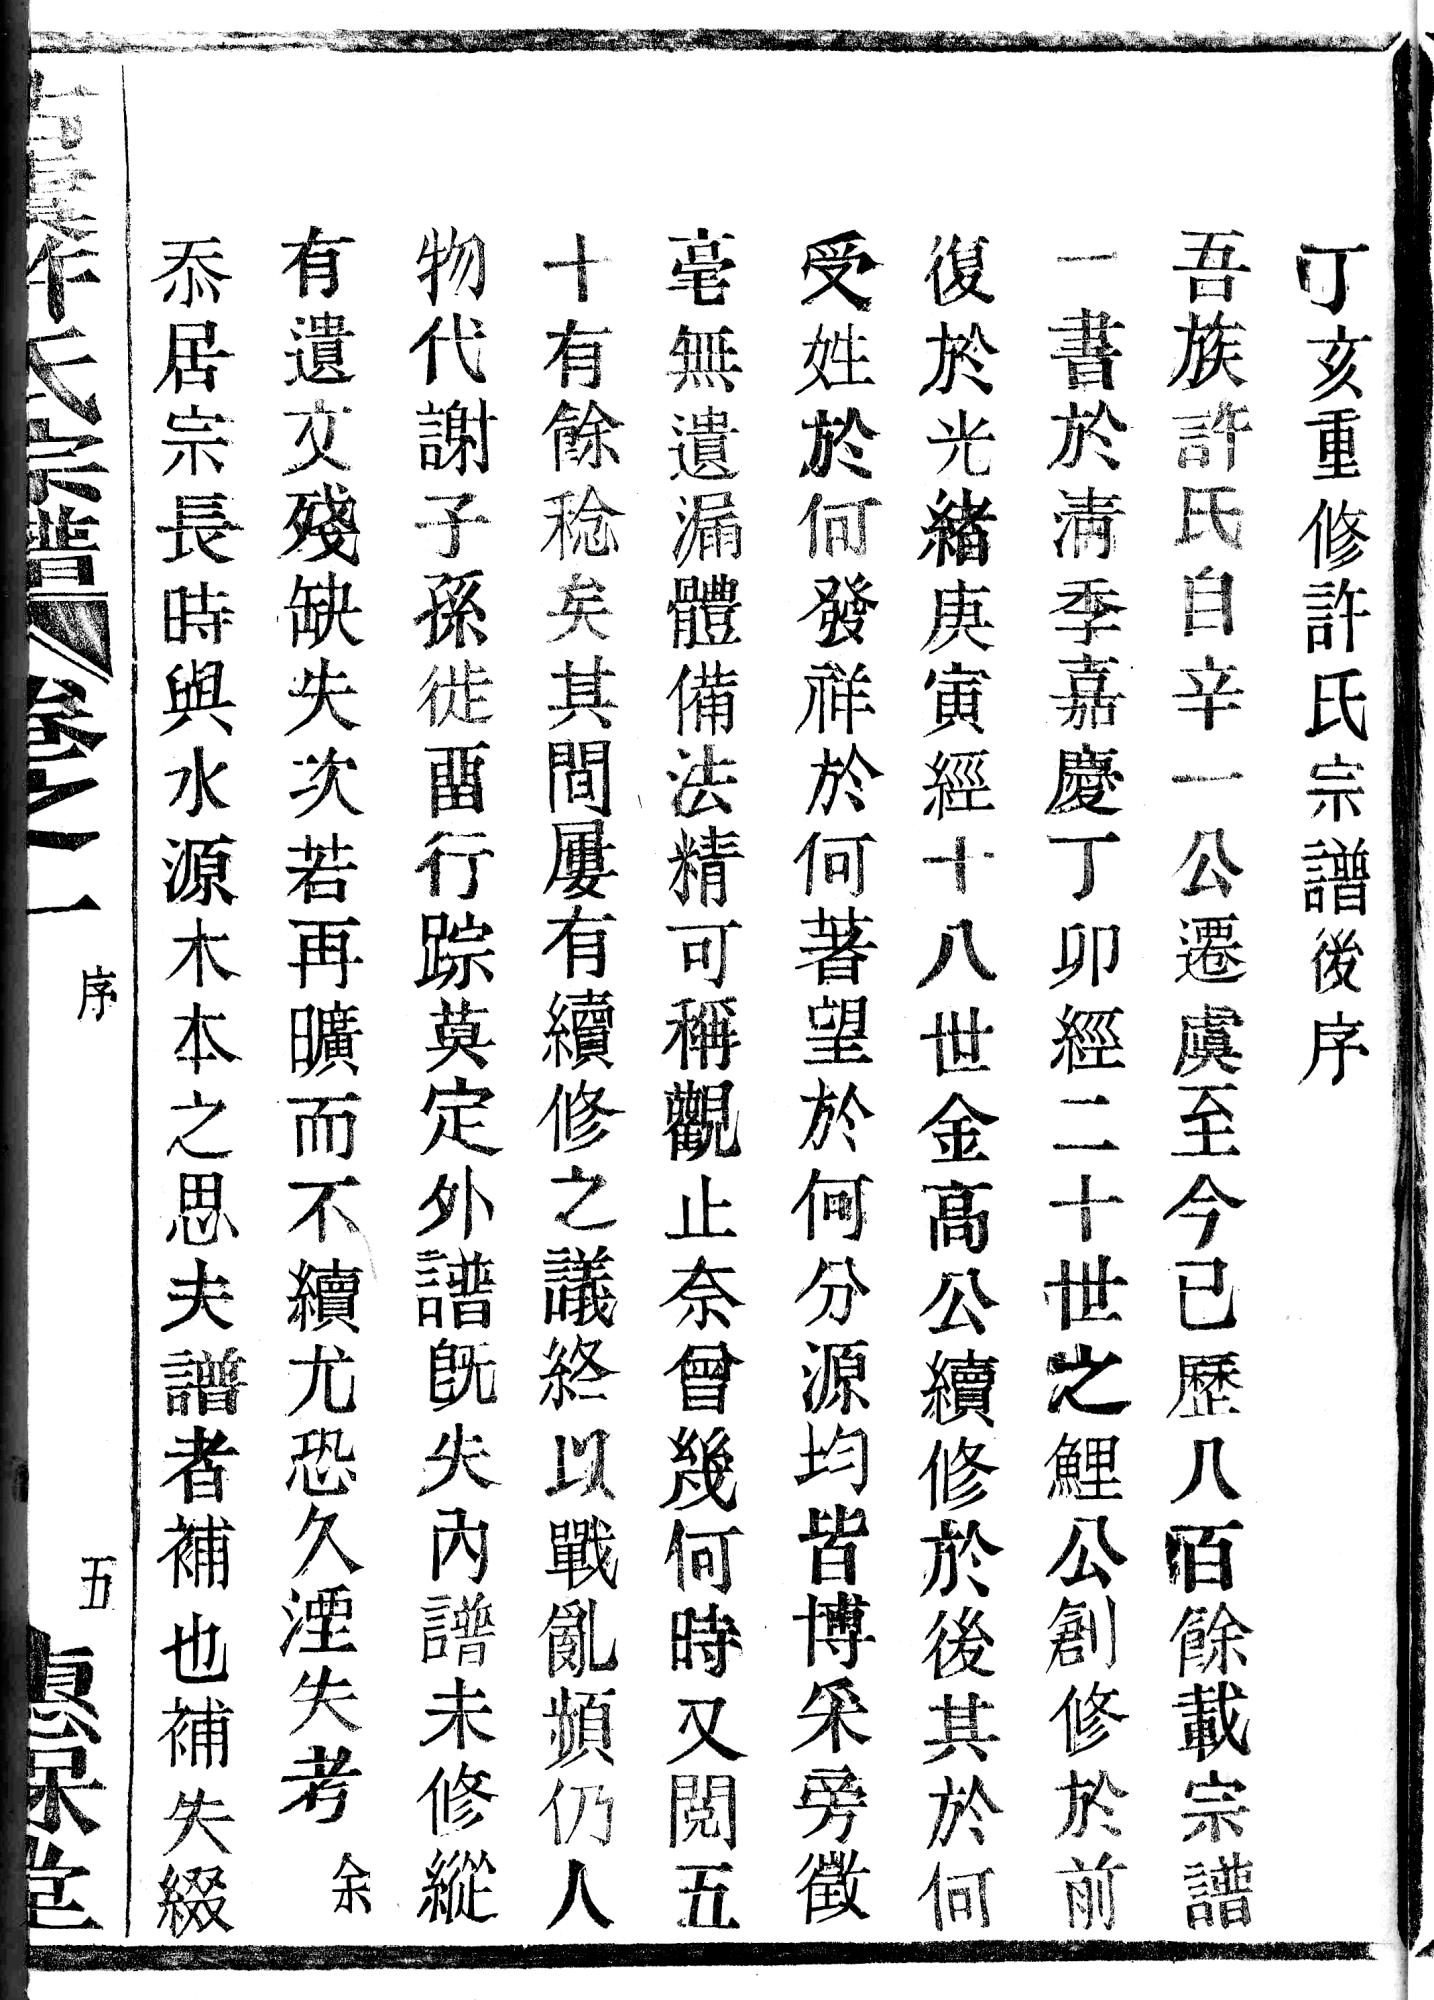 丁亥重修許氏宗譜後序
吾族許氏自辛一公遷虞至今已歷八百餘載宗譜
一書於清季嘉慶丁卯經二十世之鯉公創修於前
復於光緒庚寅經十八世金高公續修於後其於何
受姓於何發祥於何著望於何分源均皆博采旁徵
毫無遺漏體備法精可稱觀止奈曾幾何時又閱五
十有餘稔矣其間屢有續修之議終以戰亂頻仍人
物代謝子孫徙畱行踪莫定外譜旣失內譜未修縱
有遺文殘缺失次若再曠而不續尤恐久湮失考余
忝居宗長時與水源木本之思夫譜者補也補失綴
許氏宗譜 卷之一 序 五 惠保堂